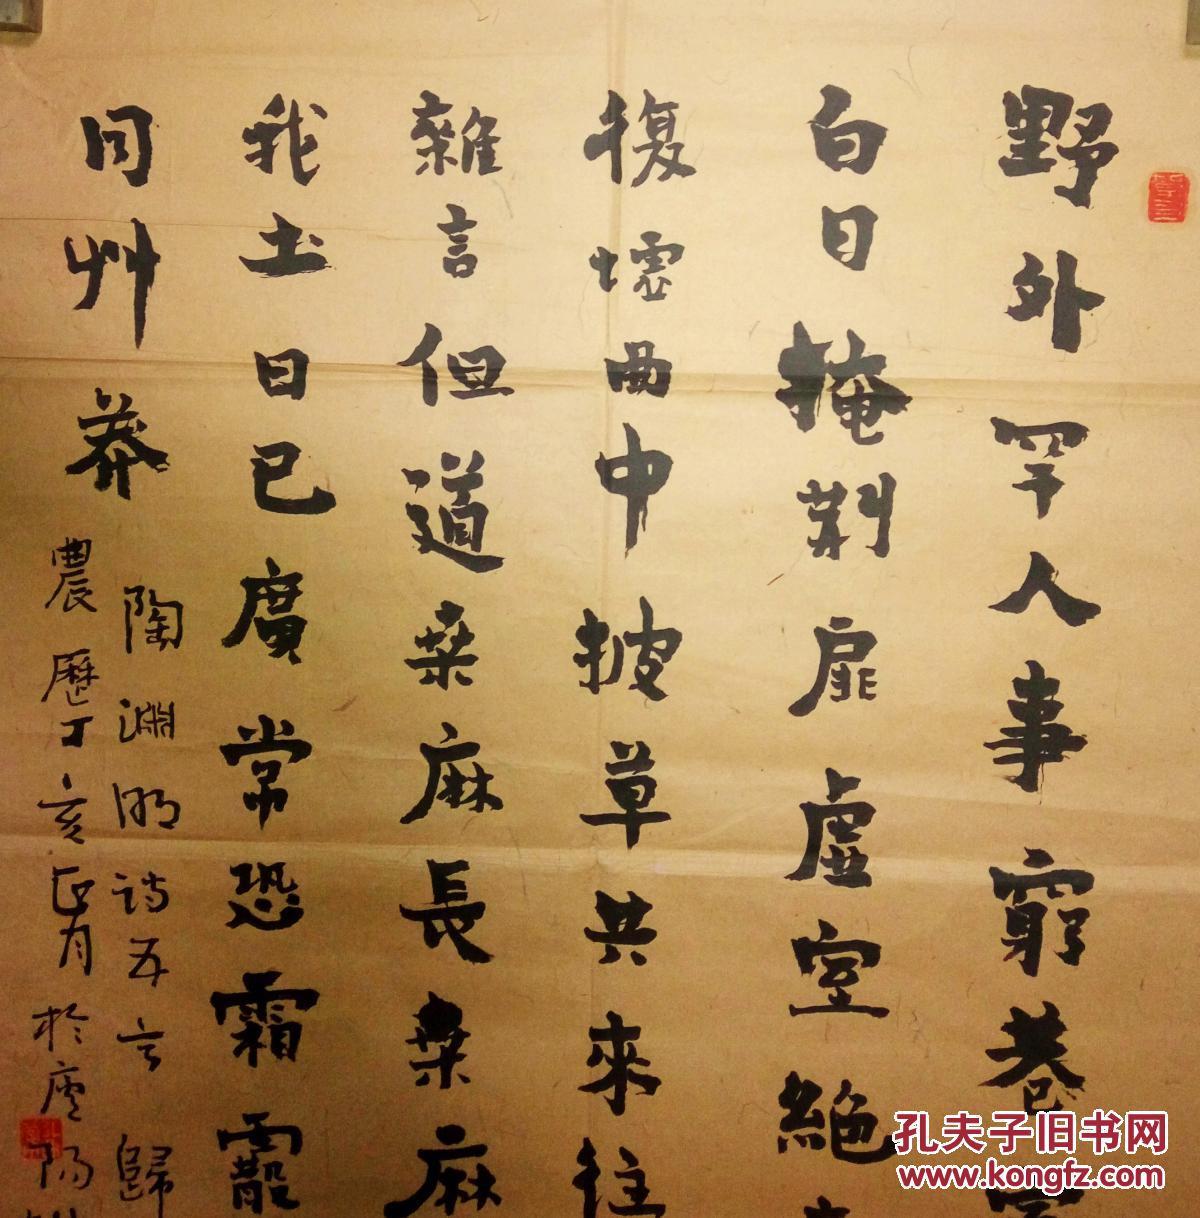 野外罕人事窮巷寡
白日掩荊扉虛室絕
復墟曲中披草共來往
雜言但道桑麻長桑麻
我土日已廣常恐霜霰
同艸莽
陶淵明詩五言歸
農歷丁亥正月於廬陽
孔夫子旧书网
www.kongfz.com